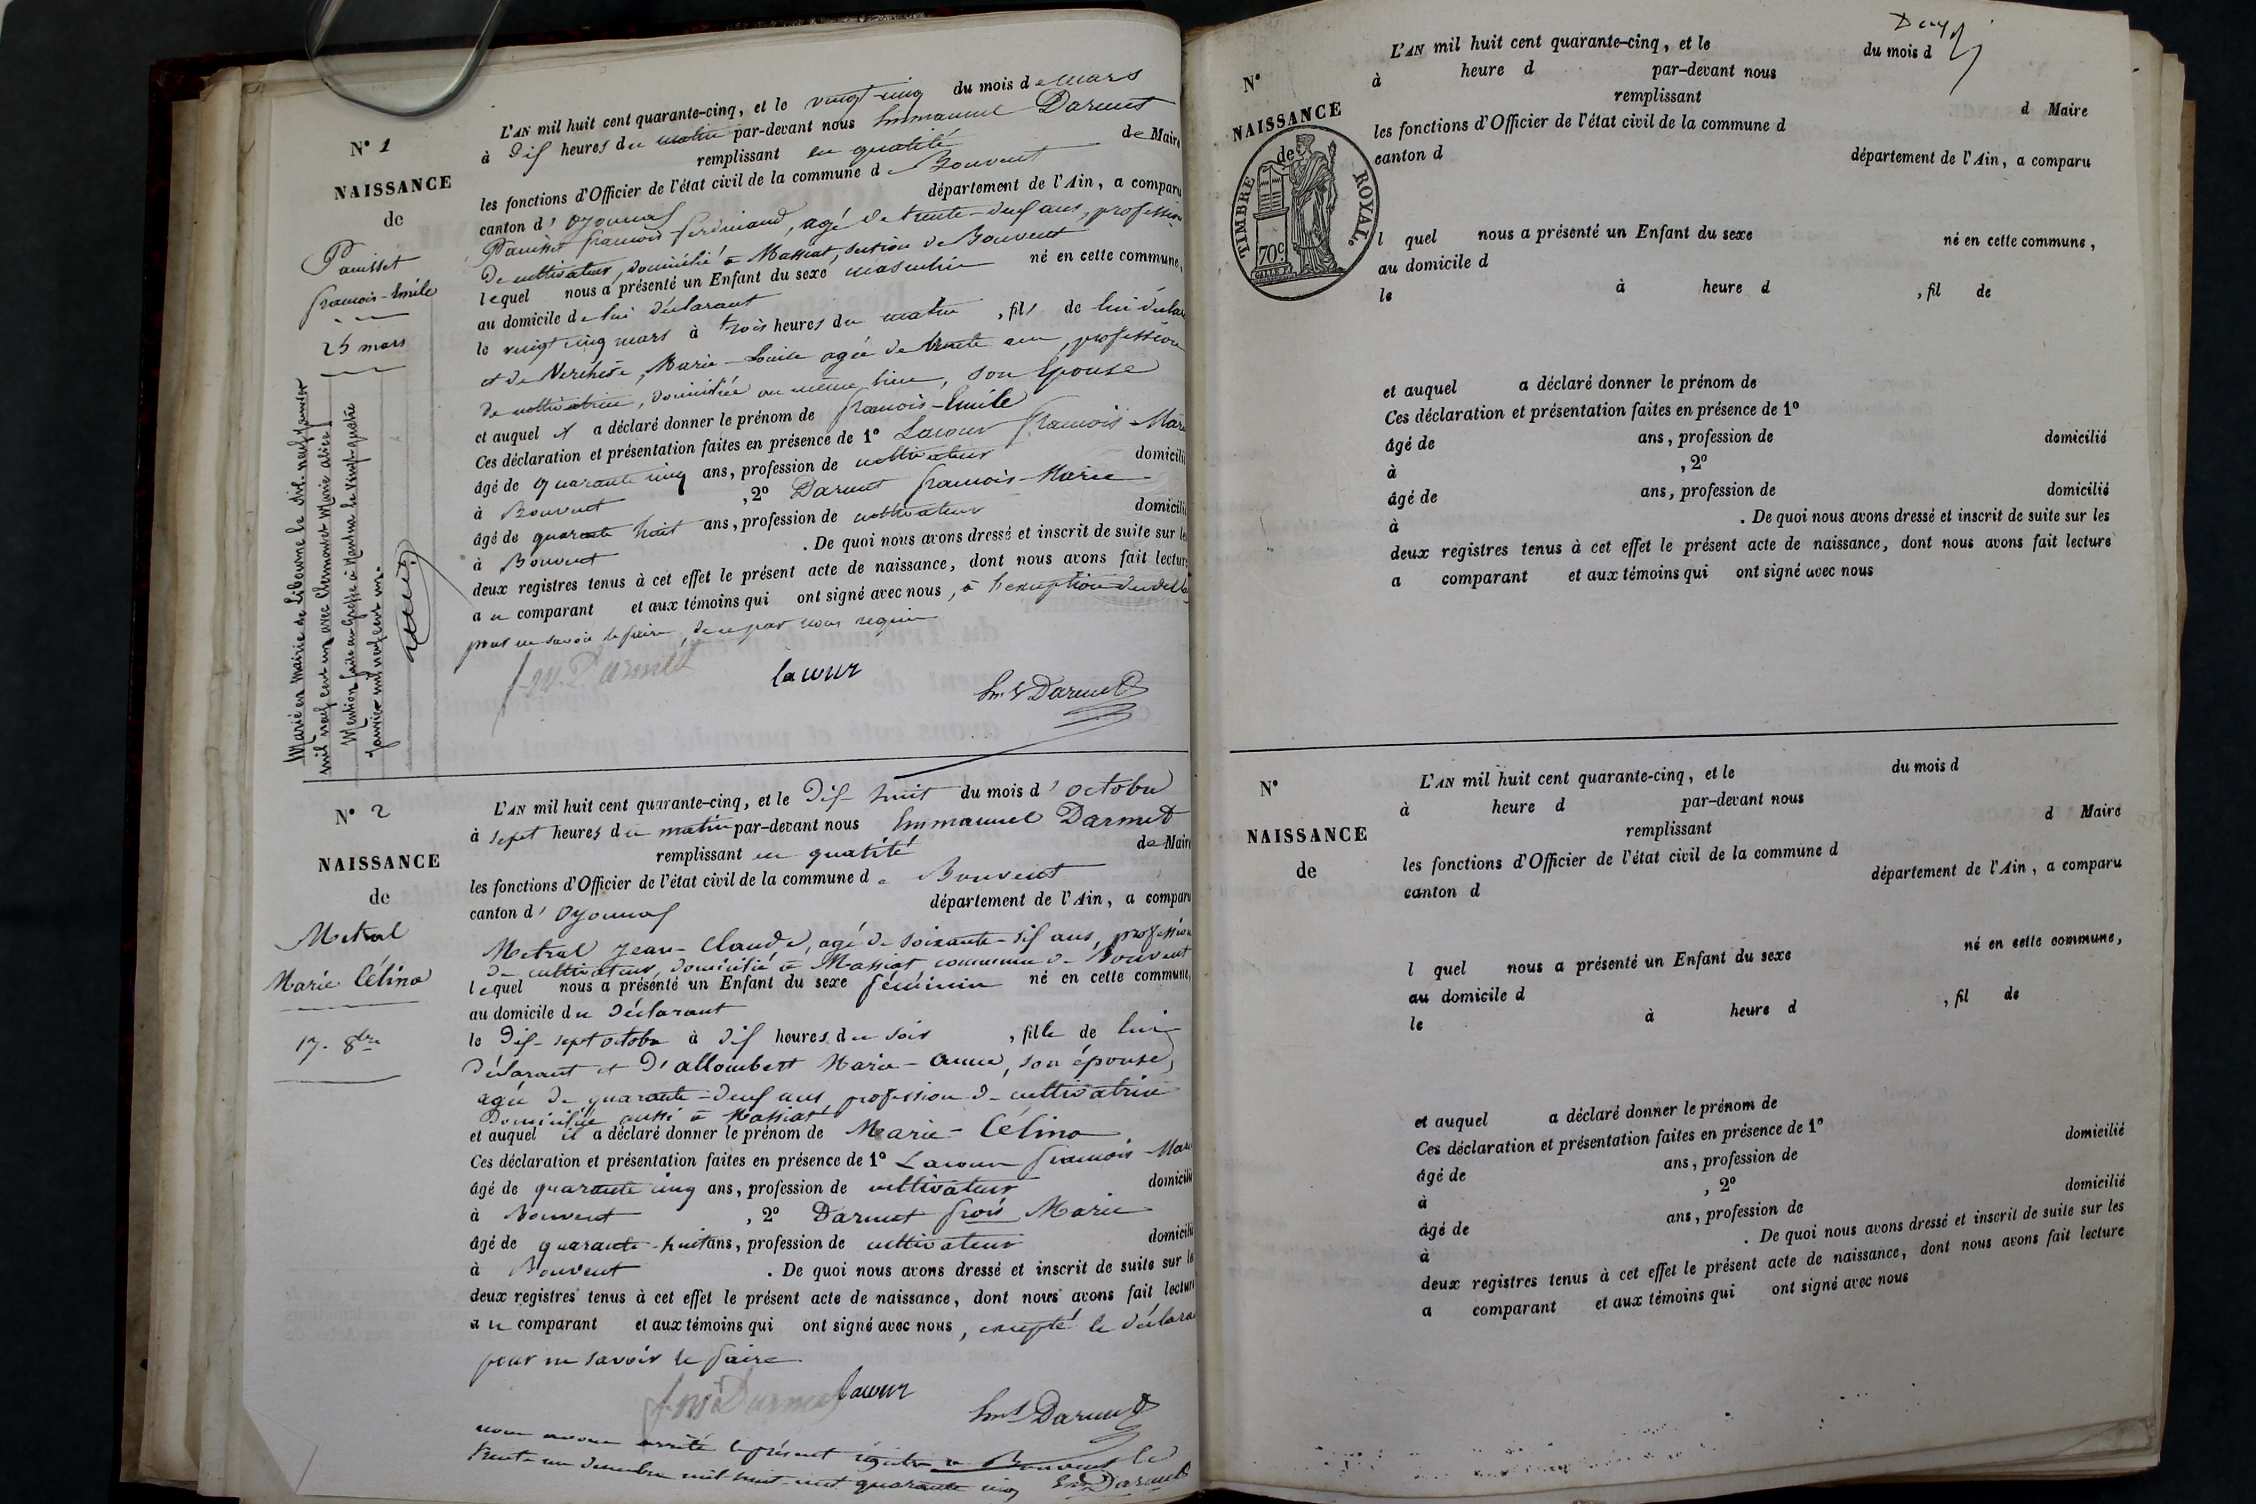 N° 1
NAISSANCE
de
Panisset
françois-Emile
25 mars
Marié en mairie de Libourne le dix-neuf Janvier
mil neuf cent un avec Chemouset Marie alice
Mention faite au Greffe à Nantua le vingt-quatre
Janvier mil neuf cent un.
L'AN mil huit cent quarante-cinq, et le vingt-cinq du mois de Mars
à dix heures du matin par-devant nous Emmanuel Darmet
remplissant en qualité de Maire
les fonctions d'Officier de l'état civil de la commune de Bouvent
canton d'oyonnax département de l'Ain, a comparu
Panisset françois ferdinand, agé de trente-deux ans, profession
de cultivateur, domicilié à Massiat, section de Bouvent
lequel nous a présenté un Enfant du sexe masculin né en cette commune,
au domicile de lui déclarant
le vingt cinq mars à trois heures du matin, fils de lui déclar
et de Verchère, Marie-Louise agée de trente ans, profession
de cultivatrice, domiciliée au même lieu, son épouse
et auquel il a déclaré donner le prénom de françois-Emile
Ces déclaration et présentation faites en présence de 1° Lacour françois-Marie
âgé de quarante cinq ans, profession de cultivateur domicilié
à Bouvent, 2° Darmet françois-Marie
âgé de quarante huit ans, profession de cultivateur domicilié
à Bouvent. De quoi nous avons dressé et inscrit de suite sur les
deux registres tenus à cet effet le présent acte de naissance, dont nous avons fait lecture
au comparant et aux témoins qui ont signé avec nous, à l'exception du décla
pour ne savoir le faire, de ce par nous requis
f. M. Darmet
lacour
Em.l Darmet
N° 2
NAISSANCE
de
Metral
Marie Célina
17. 8bre
L'AN mil huit cent quarante-cinq, et le dix-huit du mois d'octobre
à sept heures du matin par-devant nous Emmanuel Darmet
remplissant en qualité de Maire
les fonctions d'Officier de l'état civil de la commune de Bouvent
canton d'oyonnax département de l'Ain, a comparu
Metral Jean-Claude, agé de soixante-dix ans, profession
de cultivateur, domicilié à Massiat commune de Bouvent
lequel nous a présenté un Enfant du sexe féminin né en cette commune,
au domicile du déclarant
le dix-sept octobre à dix heures du soir, fille de lui
déclarant et d'allombert Marie-Anne, son épouse,
agée de quarante-deux ans, profession de cultivatrice
Domiciliée aussi à Massiat
et auquel il a déclaré donner le prénom de Marie-Célina
Ces déclaration et présentation faites en présence de 1° Lacour françois-Marie
âgé de quarante cinq ans, profession de cultivateur domicilié
à Bouvent, 2° Darmet frois Marie
âgé de quarante-huit ans, profession de cultivateur domicilié
à Bouvent. De quoi nous avons dressé et inscrit de suite sur les
deux registres tenus à cet effet le présent acte de naissance, dont nous avons fait lecture
au comparant et aux témoins qui ont signé avec nous, excepté le déclara
pour ne savoir le faire
f. M. Darmet
lacour
Em.l Darmet
nous avons arrêté le présent registre à Bouvent le
trente un decembre mil huit cent quarante cinq Em. Darmet
N°
NAISSANCE
de
TIMBRE ROYAL.
70c.
L'AN mil huit cent quarante-cinq, et le du mois d
à heure d par-devant nous
remplissant d Maire
les fonctions d'Officier de l'état civil de la commune d
canton d département de l'Ain, a comparu
l quel nous a présenté un Enfant du sexe né en cette commune,
au domicile d
le à heure d , fil de
et auquel a déclaré donner le prénom de
Ces déclaration et présentation faites en présence de 1°
âgé de ans, profession de domicilié
à , 2°
âgé de ans, profession de domicilié
à . De quoi nous avons dressé et inscrit de suite sur les
deux registres tenus à cet effet le présent acte de naissance, dont nous avons fait lecture
a comparant et aux témoins qui ont signé avec nous
N°
NAISSANCE
de
L'AN mil huit cent quarante-cinq, et le du mois d
à heure d par-devant nous
remplissant d Maire
les fonctions d'Officier de l'état civil de la commune d
canton d département de l'Ain, a comparu
l quel nous a présenté un Enfant du sexe né en cette commune,
au domicile d
le à heure d , fil de
et auquel a déclaré donner le prénom de
Ces déclaration et présentation faites en présence de 1°
âgé de ans, profession de domicilié
à , 2°
âgé de ans, profession de domicilié
à . De quoi nous avons dressé et inscrit de suite sur les
deux registres tenus à cet effet le présent acte de naissance, dont nous avons fait lecture
a comparant et aux témoins qui ont signé avec nous